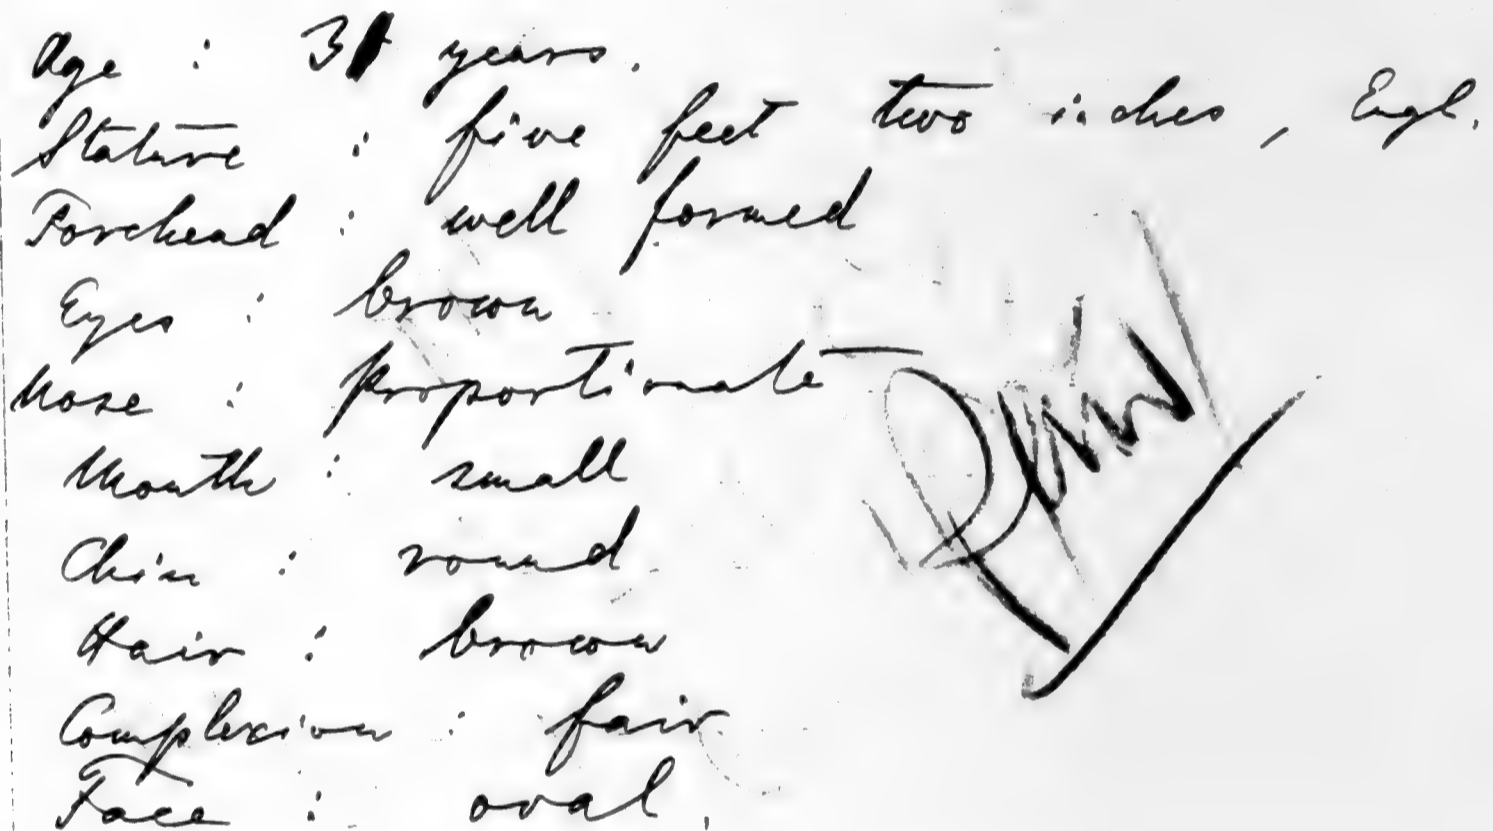 Age : 31 years.
Stature : five feet two inches, Engl.
Forehead : well formed
Eyes : brown
Nose : proportionate
Mouth : small
Chin : round
Hair : brown
Complexion : fair
Face : oval.